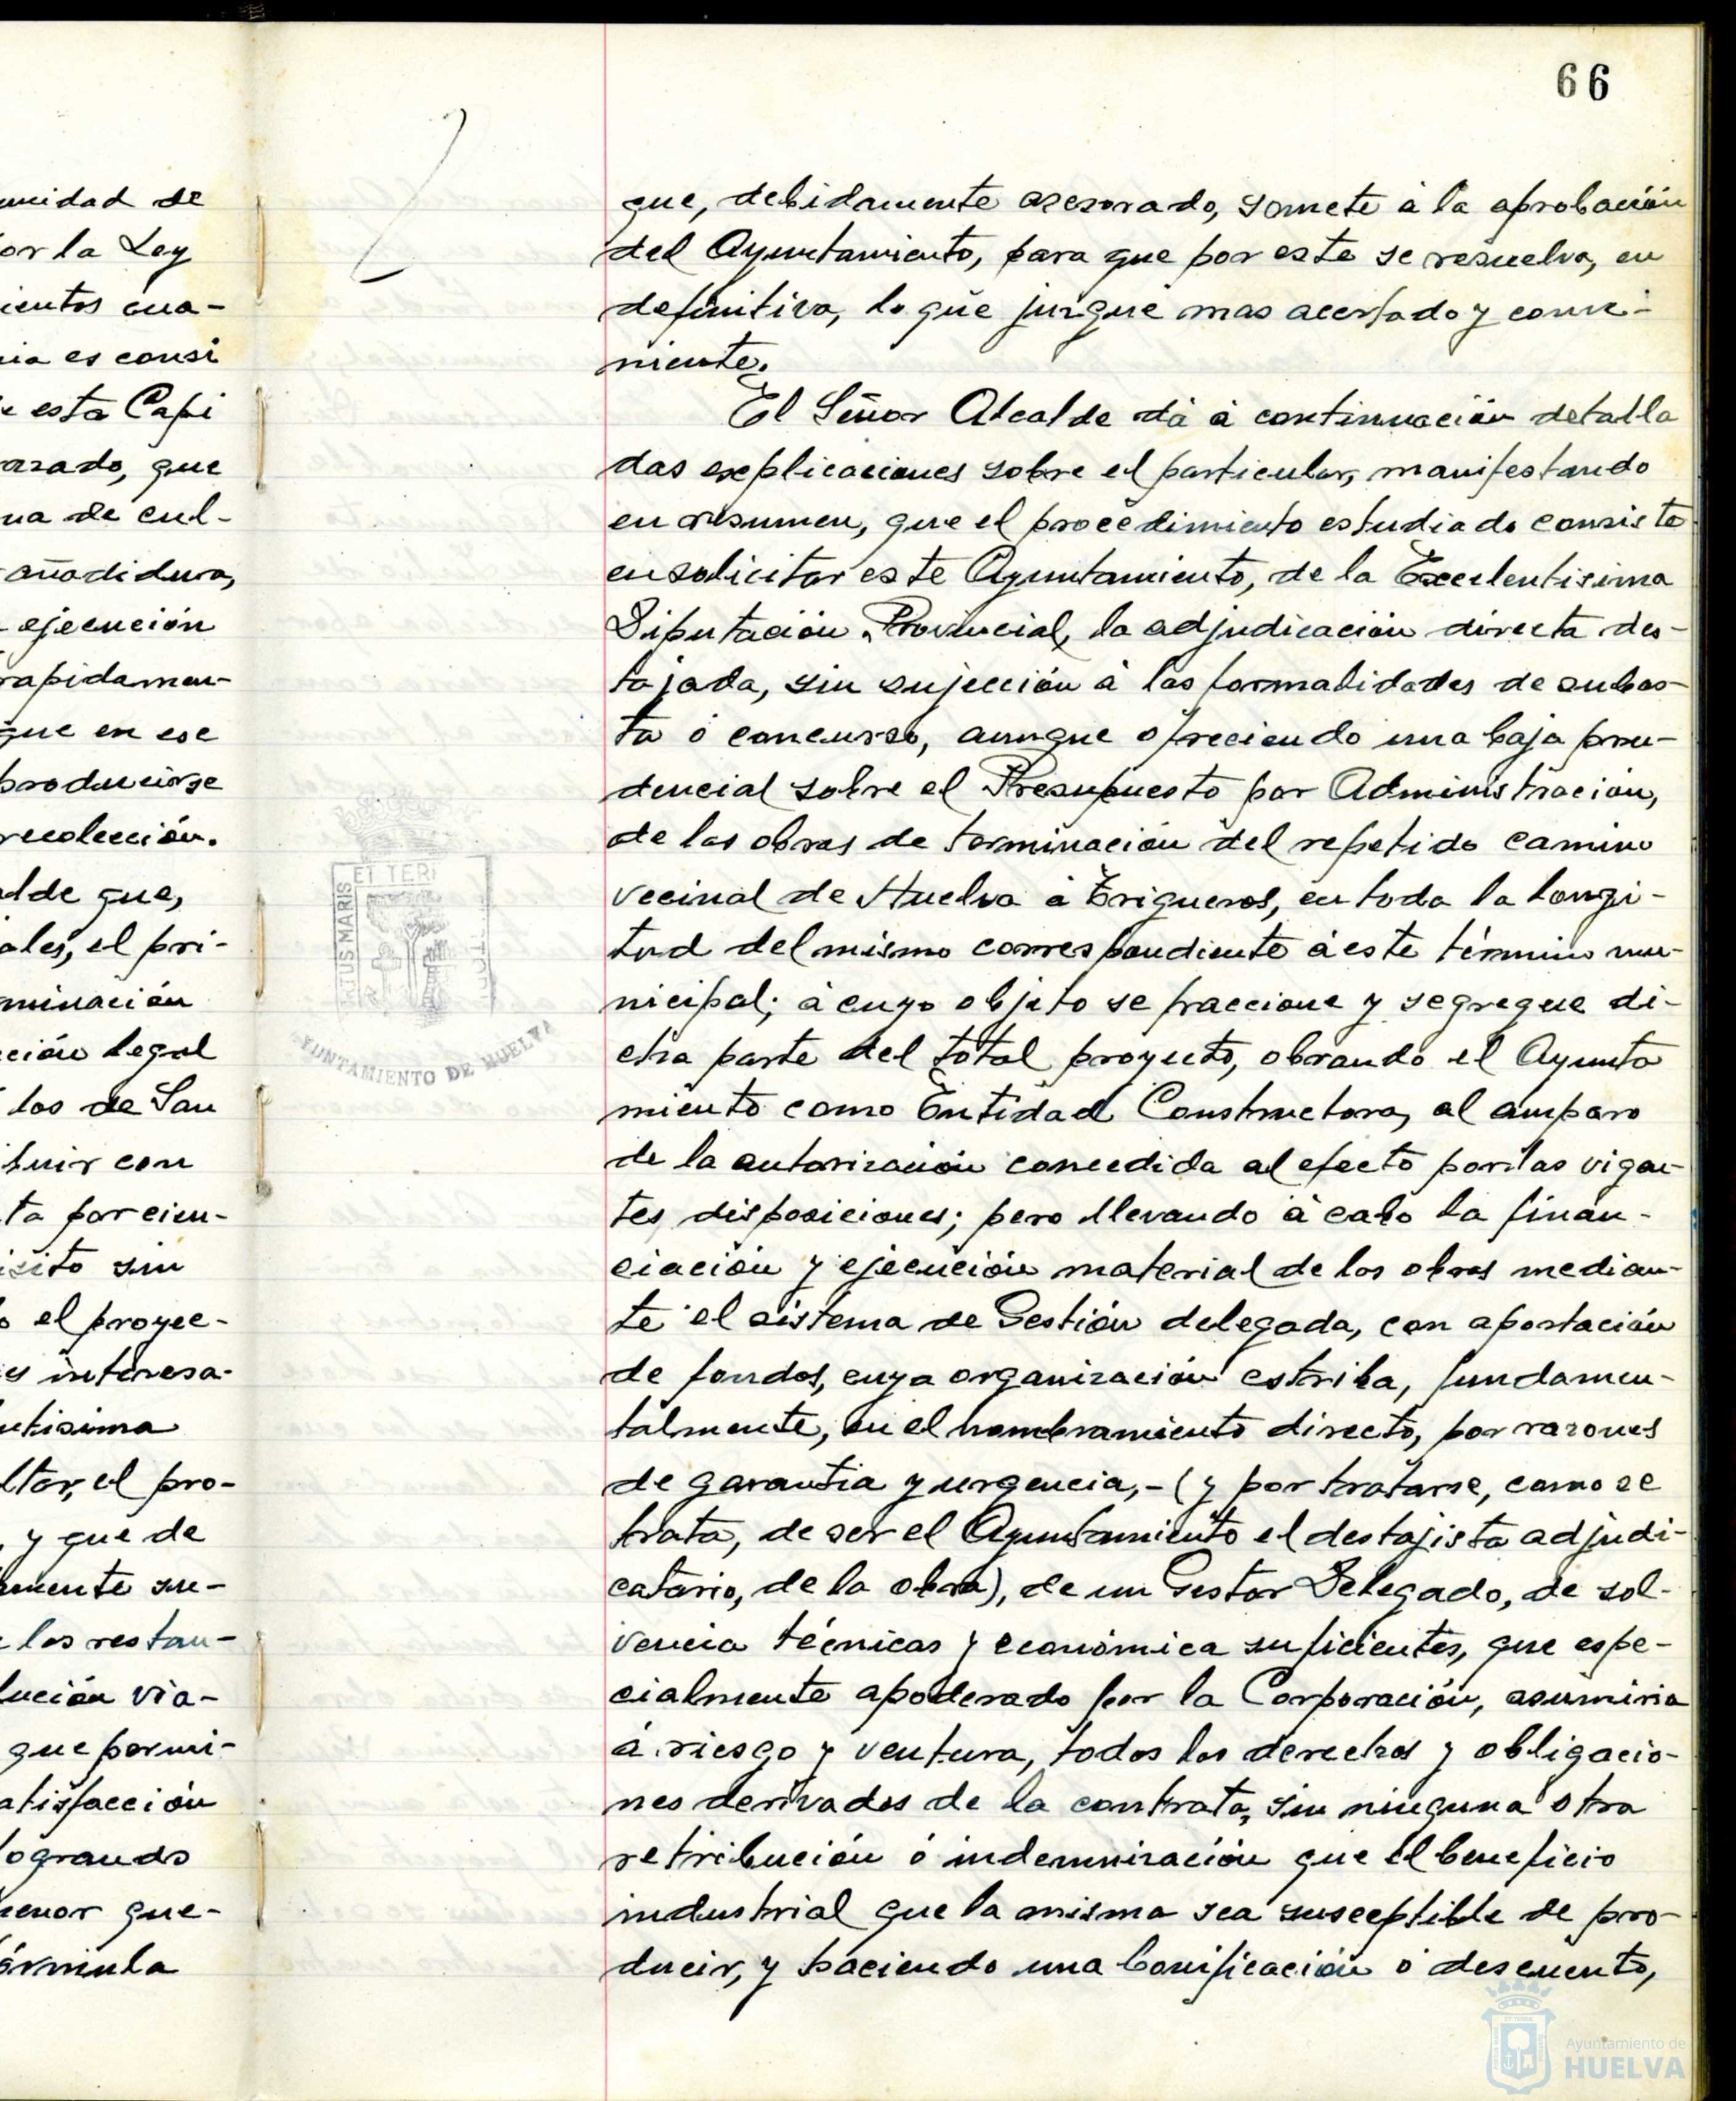 66
unidad de
or la Ley
ientos cua-
ia es consi
e esta Capi
arado, que
na de cul-
añadidura,
ejecución
rapidamen-
que en ese
producirse
recolección.
alde que,
ales, el pri-
minación
ción legal
los de San
tuir con
ta por cien-
isito sin
o el proyec-
es interesa-
ntisima
ltar, el pro-
, y que de
mente su-
e los restan-
lución via-
que permi-
atisfacción
lograndо
menor que-
órmula
que, debidamente asesorado, somete á la aprobación
del Ayuntamiento, para que por este se resuelva, en
definitiva, lo que juzgue mas acertado y conve-
niente.
El Señor Alcalde dá á continuación detalla
das explicaciones sobre el particular, manifestando
en resumen, que el procedimiento estudiado consiste
en solicitar este Ayuntamiento, de la Excelentisima
Diputación Provincial, la adjudicación directa des-
tajada, sin sujección á las formalidades de subas-
ta ó concurso, aunque ofreciendo una baja pru-
dencial sobre el Presupuesto por Administración,
de las obras de terminación del repetido camino
vecinal de Huelva á Trigueros, en toda la longi-
tud del mismo correspondiente á este término mu-
nicipal; á cuyo objeto se fraccione y segregue di-
cha parte del total proyecto, obrando el Ayunta
miento como Entidad Constructora, al amparo
de la autorización concedida al efecto por las vigen-
tes disposiciones; pero llevando á cabo la finan-
ciación y ejecución material de las obras median-
te el sistema de Gestión delegada, con aportación
de fondos, cuya organización estriba, fundamen-
talmente, en el nombramiento directo, por razones
de garantia y urgencia,- (y por tratarse, como se
trata, de ser el Ayuntamiento el destajista adjudi-
catario, de la obra), de un Gestor Delegado, de sol-
vencia técnicas y económica suficientes, que espe-
cialmente apoderado por la Corporación, asumiria
á riesgo y ventura, todos los derechos y obligacio-
nes derivados de la contrata, sin ninguna otra
retribución ó indemnización que el beneficio
industrial que la misma sea susceptible de pro-
ducir, y haciendo una bonificación ó descuento,
ET TERR
PORTUS MARIS
AYUNTAMIENTO DE HUELVA
Ayuntamiento de
HUELVA